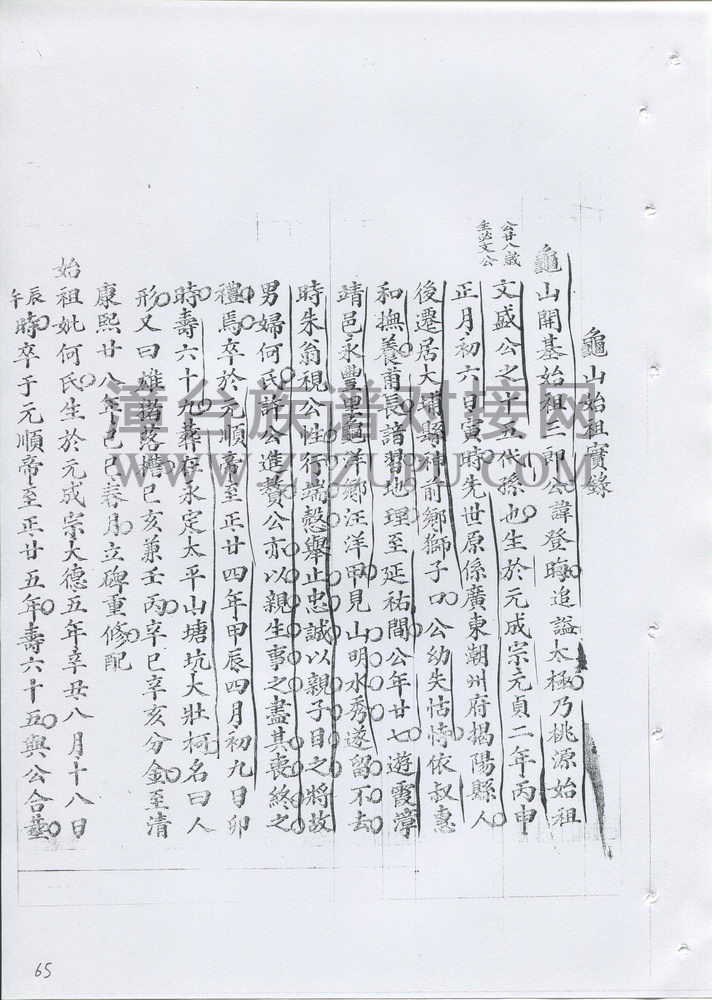 龜山始祖實錄
龜山開基始祖二郎公諱登晦追謚太極乃桃源始祖
文盛公之十五代孫也生於元成宗元貞二年丙申
公廿八歲
生必文公
正月初六日寅時先世原係廣東潮州府揭陽縣人
後遷居大埔縣神前鄉獅子口公幼失怙恃依叔惠
和撫養甫長諳習地理至延祐間公年廿七遊霞漳
靖邑永豐里龜洋鄉汪洋甲見山明水秀遂留不去
時朱翁視公性行端慤舉止忠誠以親子目之將故
男婦何氏許公進贅公亦以親生事之盡其喪終之
禮焉卒於元順帝至正廿四年甲辰四月初九日卯
時壽六十九葬存永定太平山塘坑大壯柯名曰人
形又曰雄諾落擔巳亥兼壬丙辛巳辛亥分金至清
康熙廿八年己巳春月立碑重修配
始祖妣何氏生於元成宗大德五年辛丑八月十八日
辰
午時卒于元順帝至正廿五年壽六十五與公合葬
65
章台族谱对接网
WWW.ZJZUPU.COM